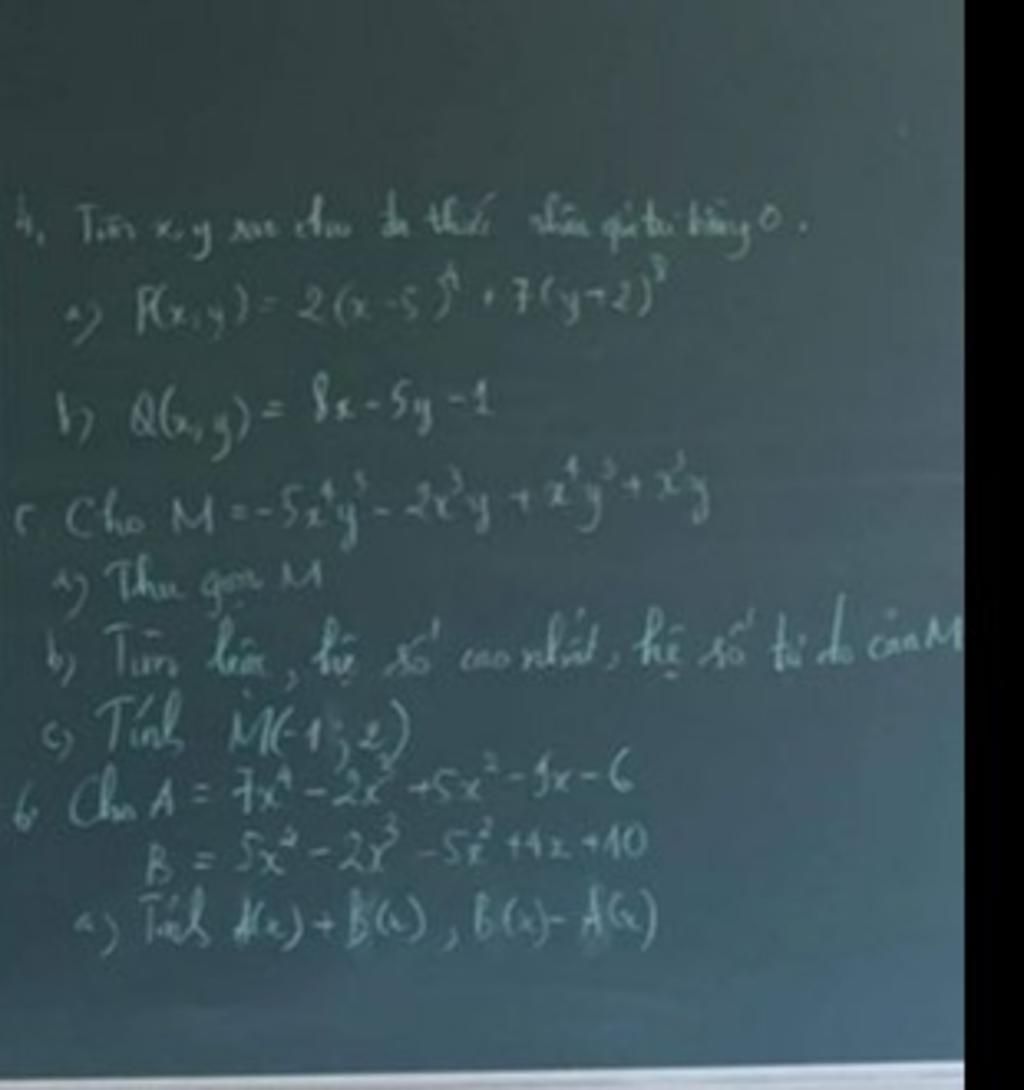 4. Tìm x, y sao cho đa thức nhận giá trị bằng 0.
a) P(x, y) = 2(x - 5)⁴ + 7(y + 2)⁸
b) Q(x, y) = 8x - 5y - 1
5 Cho M = -5x⁴y³ - 2x³y + x⁴y³ + x³y
a) Thu gọn M
b) Tìm bậc, hệ số cao nhất, hệ số tự do của M
c) Tính M(-1; 2)
6. Cho A = 7x⁴ - 2x³ + 5x² - 9x - 6
B = 5x⁴ - 2x³ - 5x² + 4x + 10
a) Tính A(x) + B(x), B(x) - A(x)